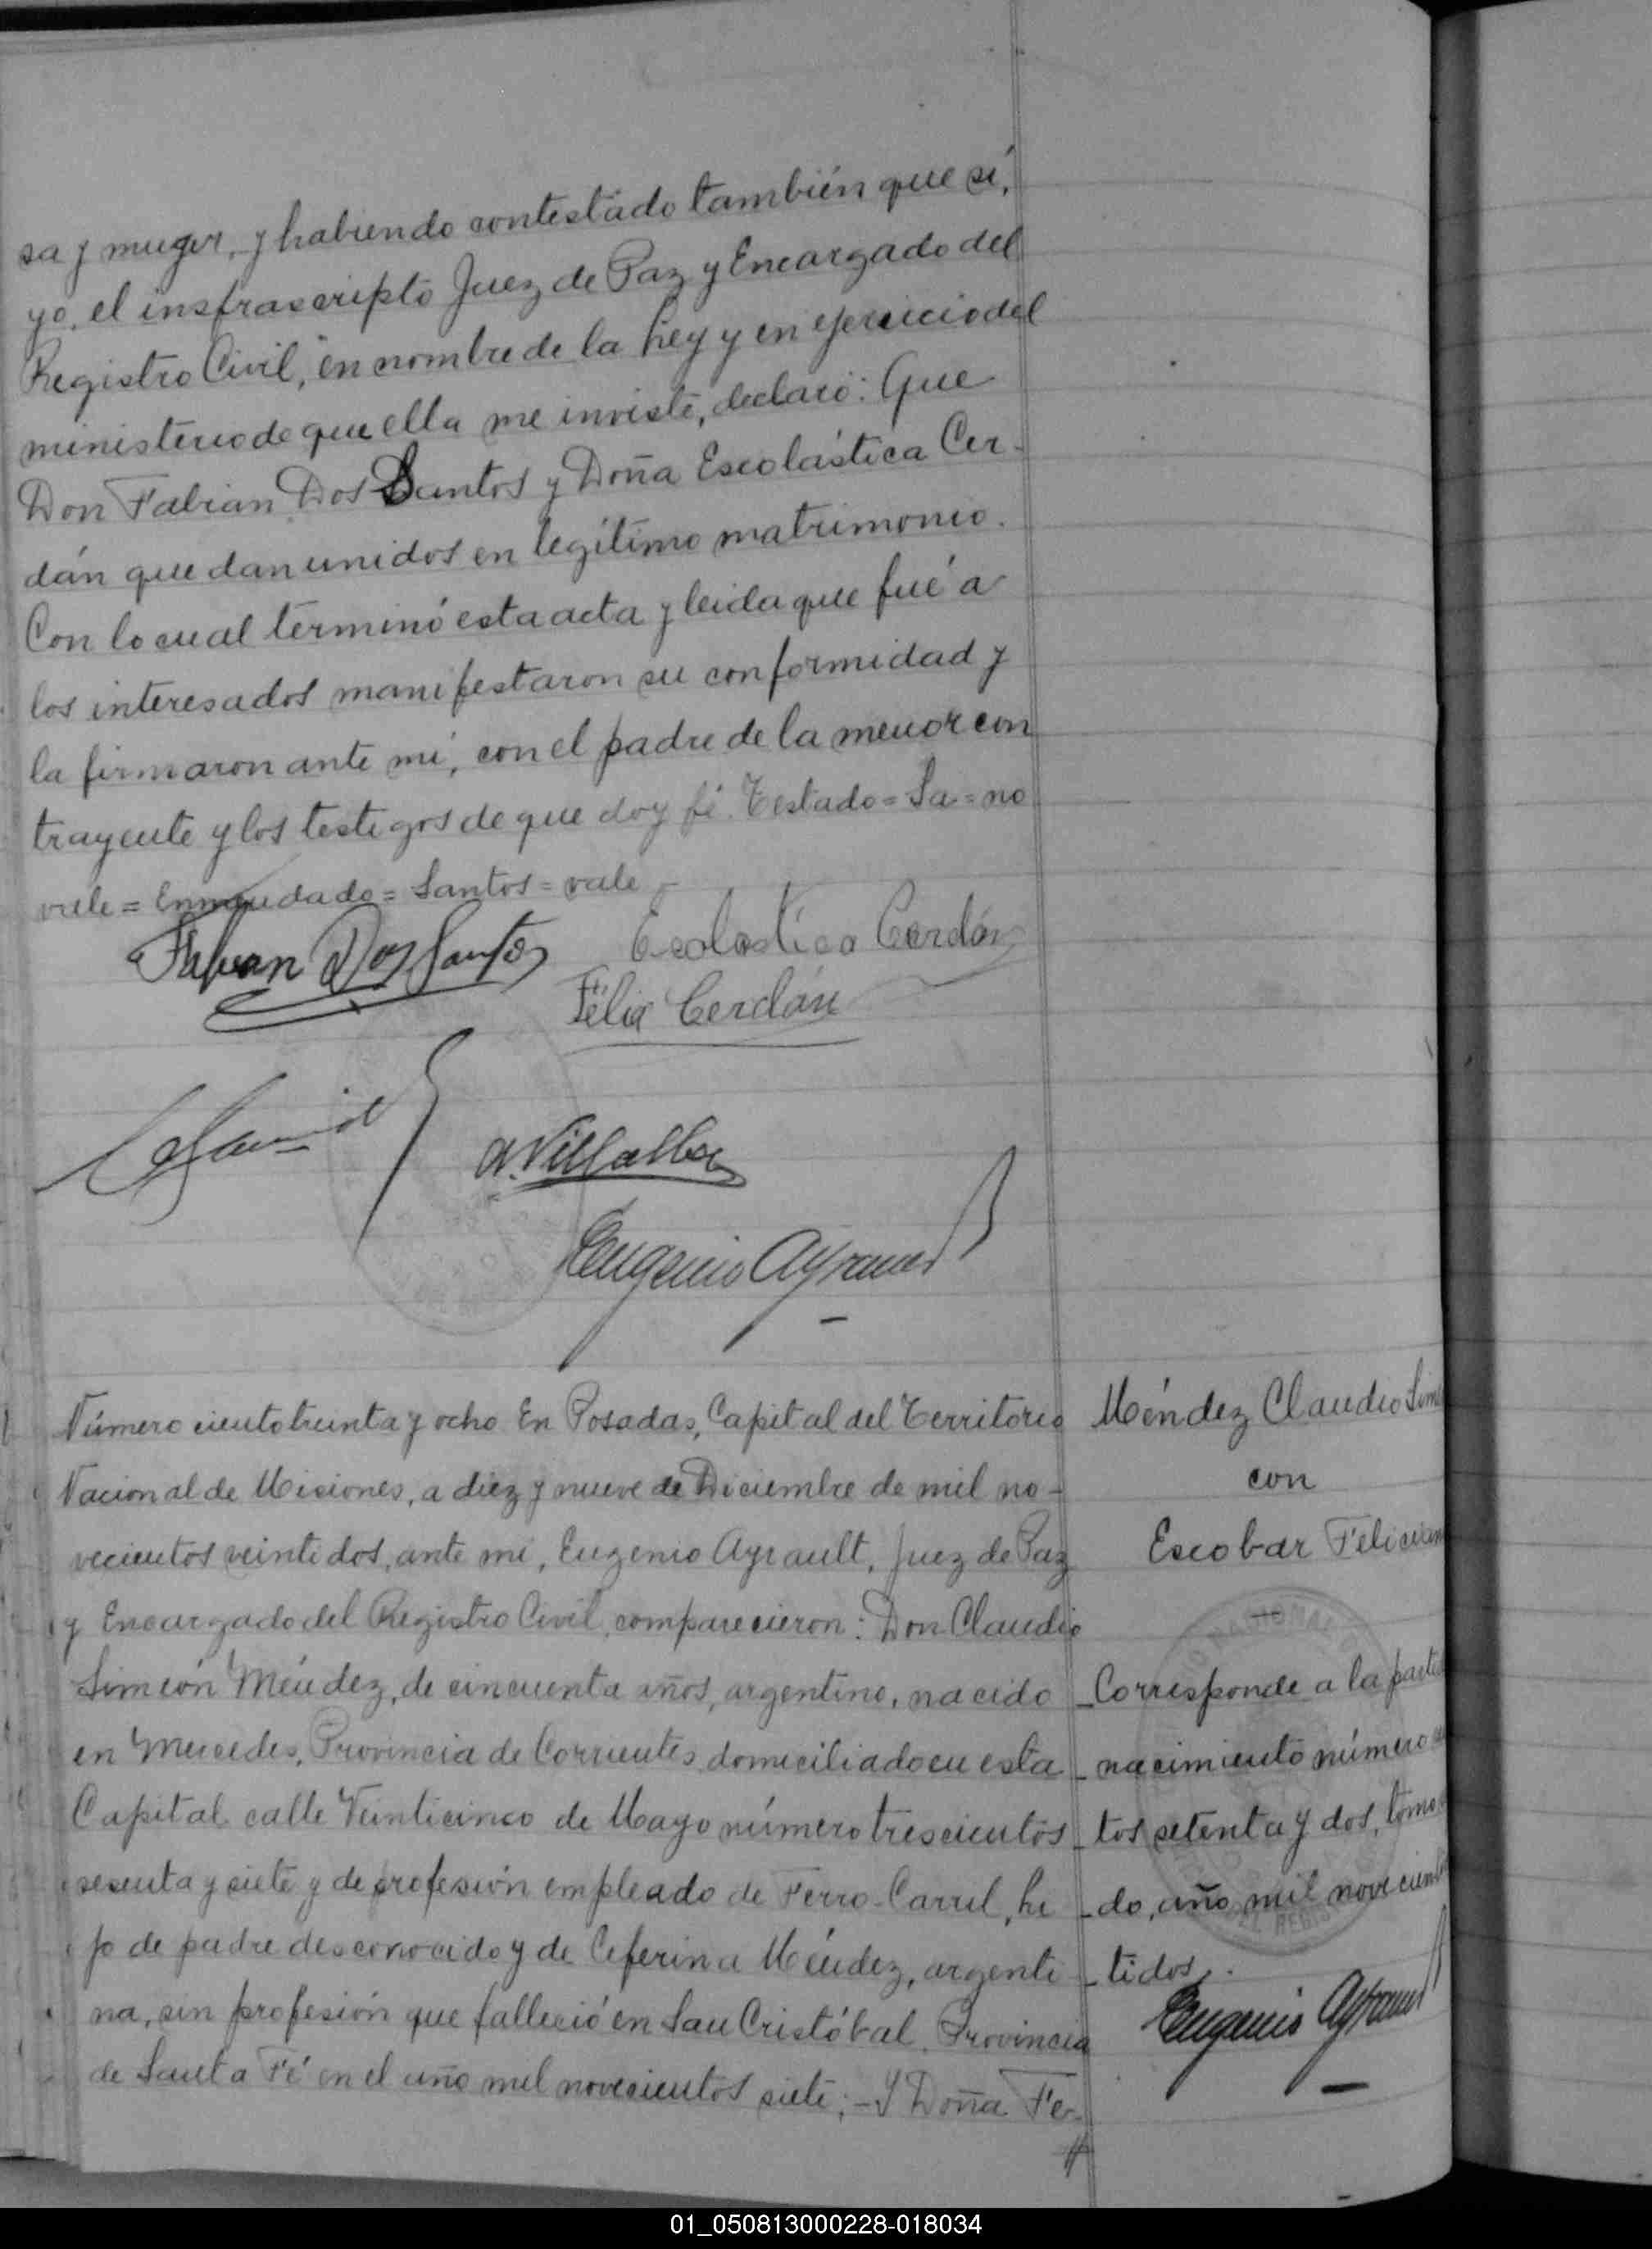 sa y muger, y habiendo contestado también que sí,
yo, el insfrascripto Juez de Paz y Encargado del
Registro Civil, en nombre de la Ley y en ejercicio del
ministerio de que ella me inviste, declaro: Que
Don Fabian Dos Santos y Doña Escolástica Cer-
dán quedan unidos en legítimo matrimonio.
Con lo cual terminó esta acta y leida que fué a
los interesados manifestaron su conformidad y
la firmaron ante mí, con el padre de la menor con
trayente y los testigos de que doy fé. Testado = Sa = no
vale = Enmendado = Santos = vale
Fabian Dos Santos Escolastica Cerdán
Félix Cerdán
A. Villalba
Eugenio Ayrault
Número ciento treinta y ocho En Posadas, Capital del Territorio
Nacional de Misiones, a diez y nueve de Diciembre de mil no-
vecientos veintidos, ante mí, Eugenio Ayrault, Juez de Paz
y Encargado del Registro Civil, comparecieron: Don Claudio
Simeón Méndez, de cincuenta años, argentino, nacido
en Mercedes, Provincia de Corrientes, domiciliado en esta
Capital calle Veinticinco de Mayo número trescientos
sesenta y siete y de profesión empleado de Ferro-Carril, hi
jo de padre desconocido y de Ceferina Méndez, argenti
na, sin profesión que falleció en San Cristóbal, Provincia
de Santa Fé en el año mil novecientos siete; - Y Doña Fe-
Méndez Claudio Sim
con
Escobar Felician
Corresponde a la parti
nacimiento número
tos setenta y dos, tomo
do, año mil novecient
tidos.
Eugenio Ayrault
01_050813000228-018034